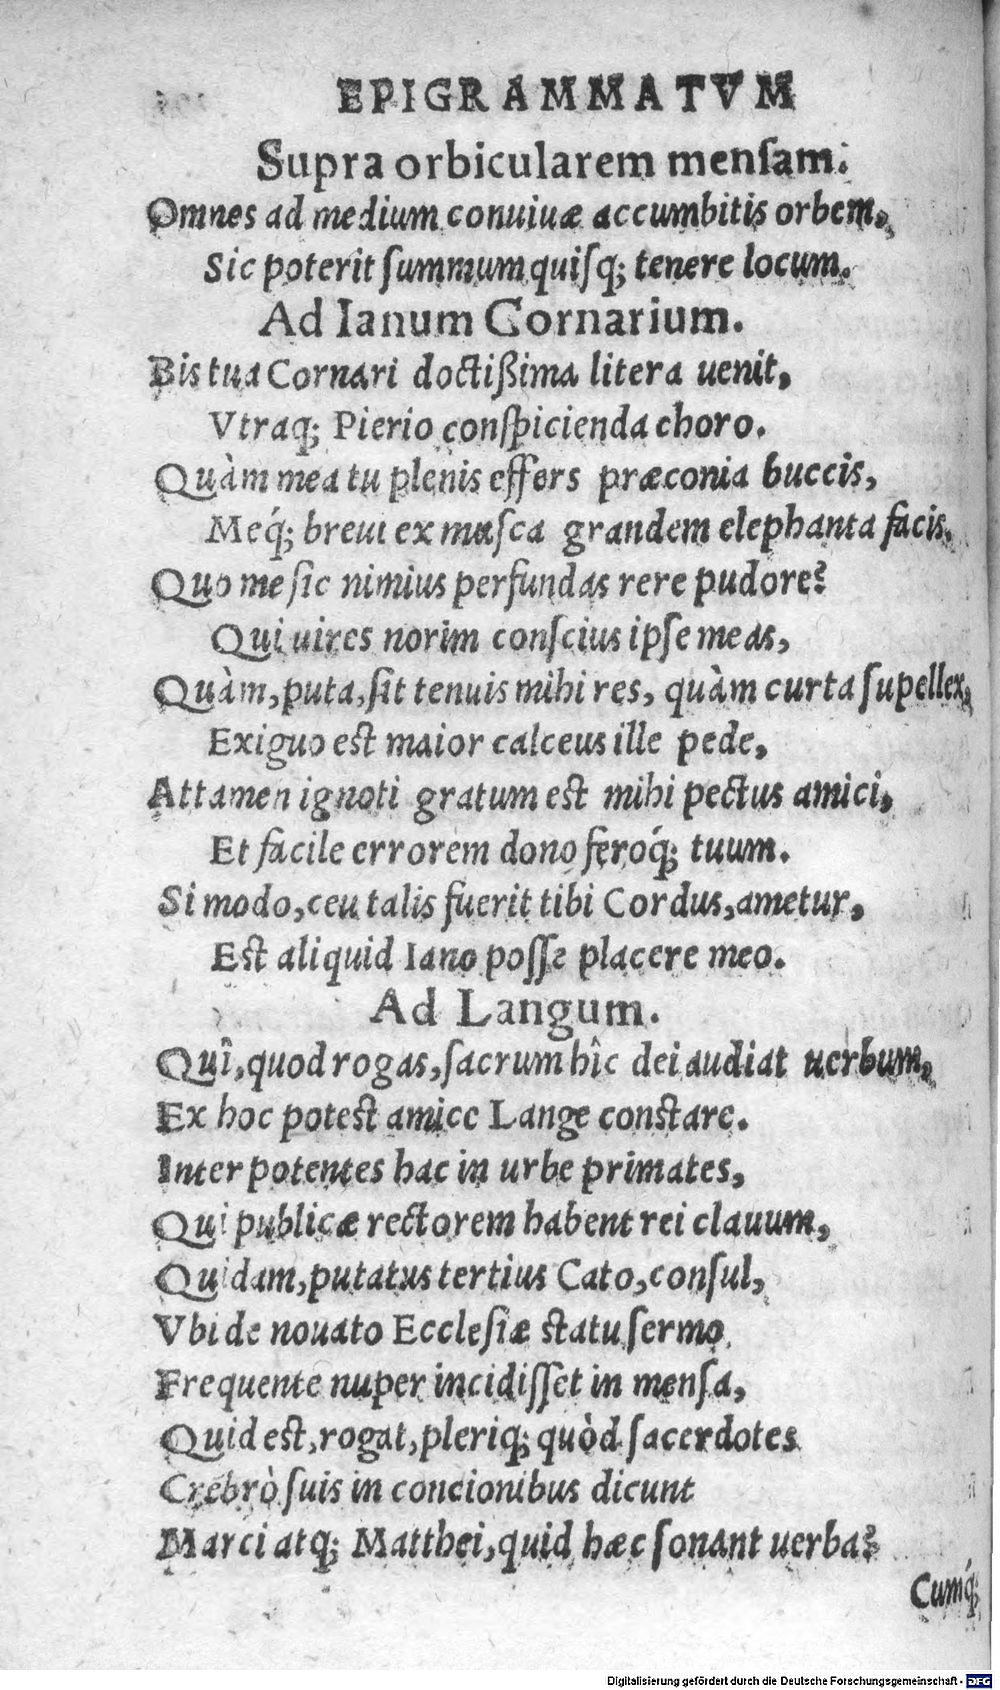 EPIGRAMMATVM
Supra orbicularem menſam.
Omnes ad medium conuiuæ accumbitis orbem,
Sic poterit ſummum quiſq; tenere locum.
Ad Ianum Cornarium.
Bis tua Cornari doctißima litera uenit,
Vtraq; Pierio conſpicienda choro.
Quàm mea tu plenis effers præconia buccis,
Meq́; breui ex muſca grandem elephanta facis.
Quo me ſic nimius perfundas rere pudore?
Qui uires norim conſcius ipſe meas,
Quàm, puta, ſit tenuis mihi res, quàm curta ſupellex,
Exiguo est maior calceus ille pede,
Attamen ignoti gratum est mihi pectus amici,
Et facile errorem dono feroq́; tuum.
Si modo, ceu talis fuerit tibi Cordus, ametur,
Est aliquid Iano poſſe placere meo.
Ad Langum.
Quî, quod rogas, ſacrum hîc dei audiat uerbum,
Ex hoc potest amice Lange constare.
Inter potentes hac in urbe primates,
Qui publicæ rectorem habent rei clauum,
Quidam, putatus tertius Cato, conſul,
Vbi de nouato Eccleſiæ statu ſermo
Frequente nuper incidiſſet in menſa,
Quid est, rogat, pleriq; quòd ſacerdotes
Crebrò ſuis in concionibus dicunt
Marci atq; Matthei, quid hæc ſonant uerba?
Cumq́;
Digitalisierung gefördert durch die Deutsche Forschungsgemeinschaft - DFG